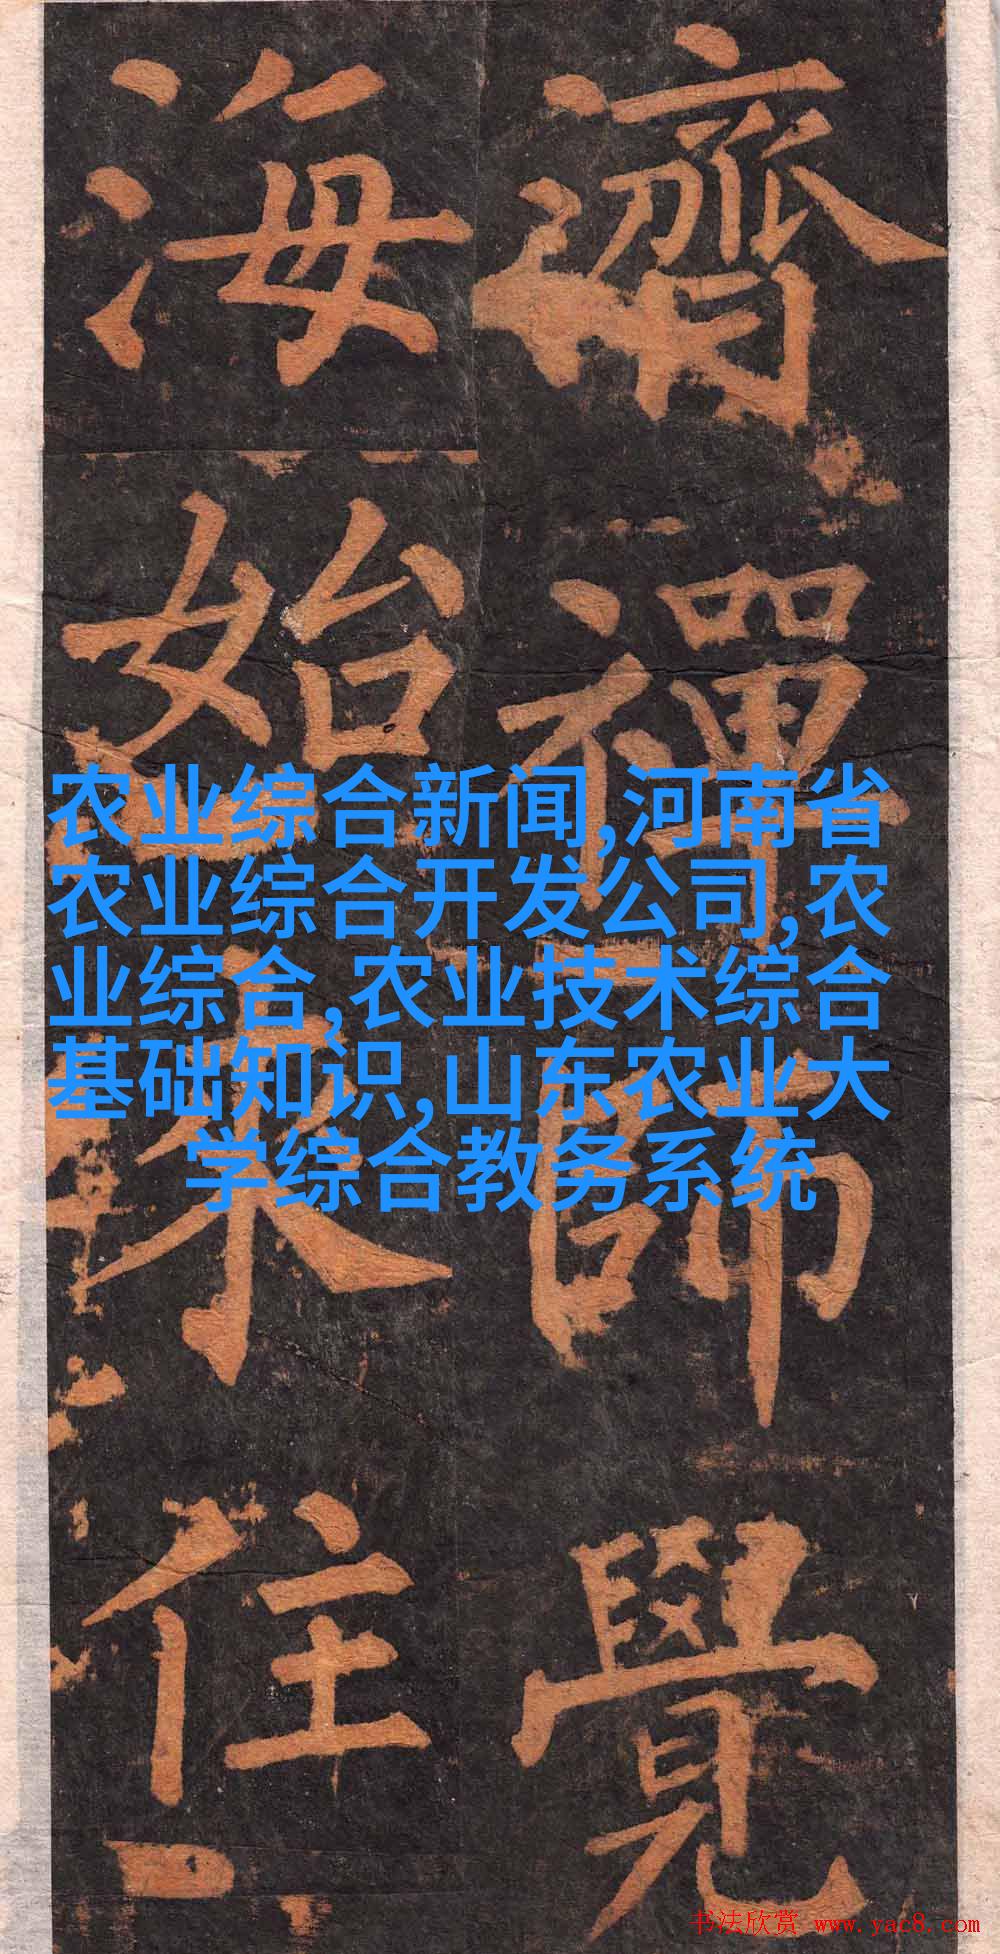 濟禪師覺
海始來住
农业综合新闻,河南省
农业综合开发公司,农
业综合,农业技术综合
基础知识,山东农业大
学综合教务系统
书法欣赏 www.yac8.com